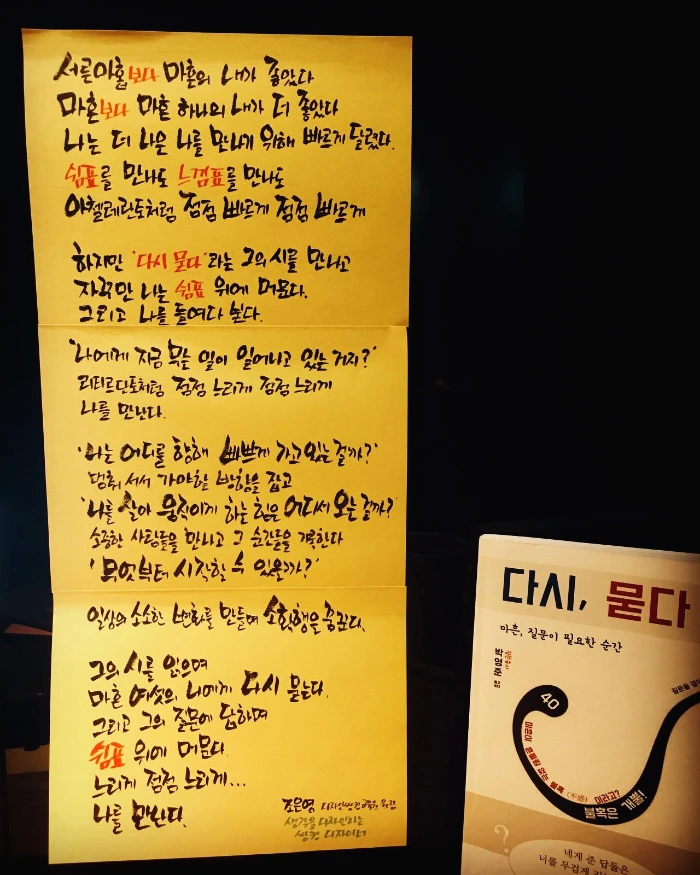 서른아홉보다 마흔의 내가 좋았다
마흔보다 마흔 하나의 내가 더 좋았다
나는 더 나은 나를 만나기 위해 빠르게 달렸다.
쉼표를 만나도 느낌표를 만나도
아첼레란도처럼 점점 빠르게 점점 빠르게
하지만 '다시 묻다'라는 그의 시를 만나고
자꾸만 나는 쉼표 위에 머문다.
그리고 나를 들여다 본다.
'나에게 지금 무슨 일이 일어나고 있는 거지?'
리타르단도처럼 점점 느리게 점점 느리게
나를 만난다.
'나는 어디를 향해 바쁘게 가고 있는 걸까?'
멈춰 서서 가야할 방향을 잡고
'나를 살아 움직이게 하는 힘은 어디서 오는 걸까?'
소중한 사람들을 만나고 그 순간들을 기록한다
'무엇부터 시작할 수 있을까?'
일상의 소소한 변화를 만들며 소확행을 꿈꾼다.
그의 시를 읽으며
마흔 여섯의 나에게 다시 묻는다.
그리고 그의 질문에 답하며
쉼표 위에 머문다.
느리게 점점 느리게...
나를 만난다.
조은영
생각을 디자인하는
생컬 디자이너
다시, 묻다
마흔, 질문이 필요한 순간
박영준
40
불혹은 개뿔!
(不惑) 이라고?
?
네게 준 답들은
너를 무겁게